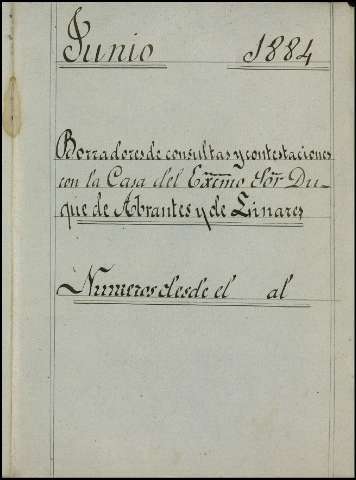 Junio 1884
Borradores de consultas y contestaciones
con la Casa del Exmo Sor Du-
que de Abrantes y de Linares
Numeros desde el al